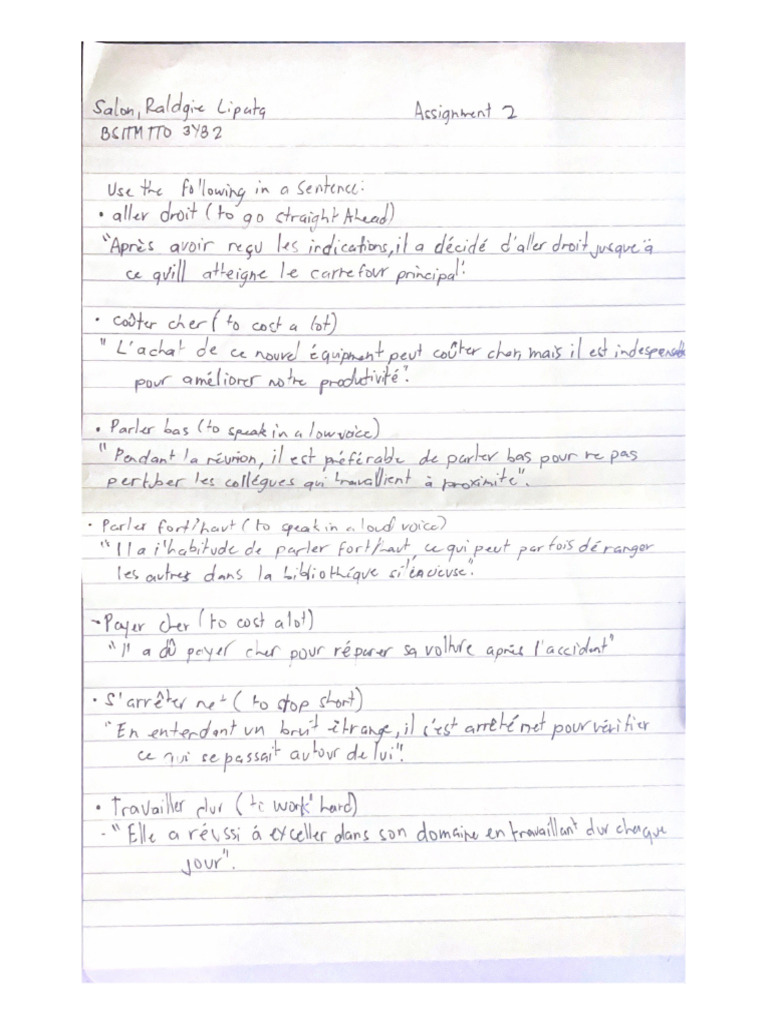 Salon, Raldgie Liputa Assignment 2
BSITM TTO 3YB2
Use the following in a sentence:
• aller droit (to go straight Ahead)
"Après avoir reçu les indications, il a décidé d'aller droit jusque'à
ce qu'ill atteigne le carrefour principal".
• coûter cher (to cost a lot)
"L'achat de ce nouvel équipment peut coûter cher, mais il est indespensable
pour améliorer notre productivité".
• Parler bas (to speak in a low voice)
"Pendant la réunion, il est préférable de parler bas pour ne pas
pertuber les collégues qui travallient à proximité".
• Parler fort/haut (to speak in a loud voice)
"Il a l'habitude de parler fort/haut, ce qui peut parfois déranger
les autres dans la bibliothéque silencieuse".
- Payer cher (to cost a lot)
"Il a dû payer cher pour réparer sa voiture après l'accident"
• S'arrêter net (to stop short)
"En entendant un bruit étrange, il c'est arrêté net pour vérifier
ce qui se passait autour de lui".
• Travailler dur (to work hard)
- "Elle a réussi á exceller dans son domaine en travaillant dur chaque
jour".